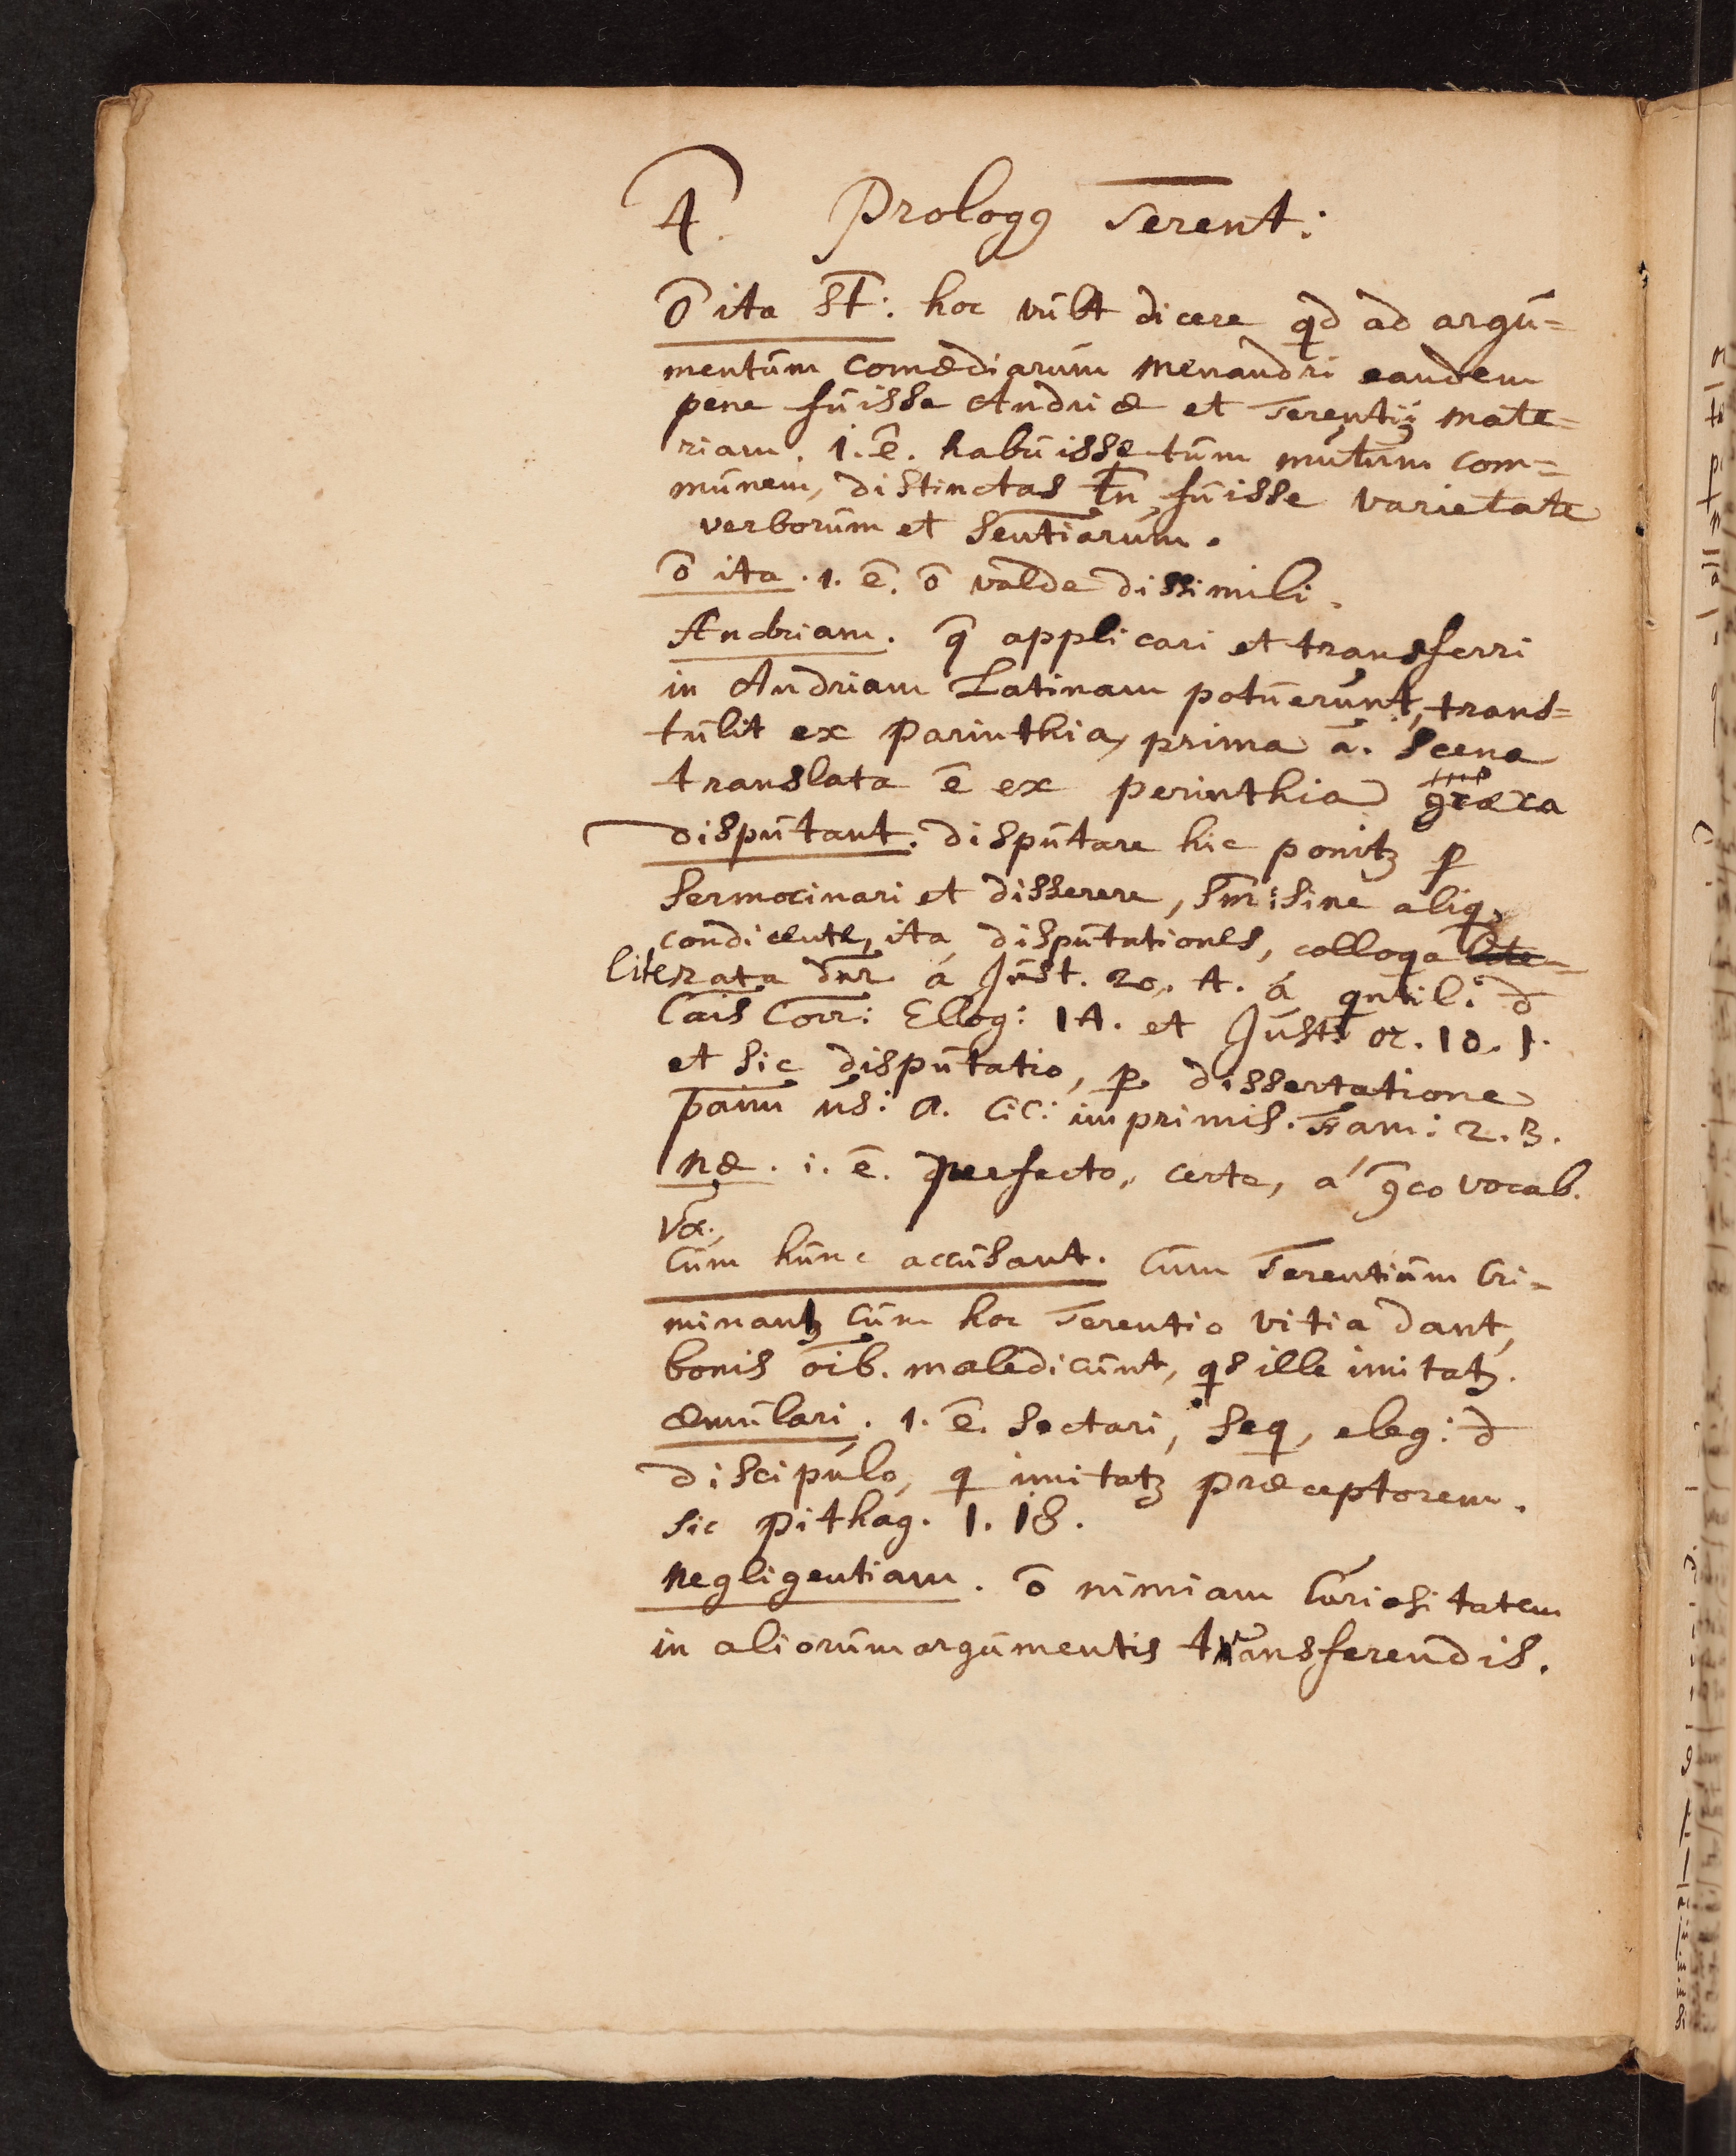 4. Prologꝯ Terent:
ō ita st̄: hoc vult dicere qd ad argu=
mentum comœdiarum Menandri eandem
pene fuisse Andriæ et Terentij mate=
riam. 1. ē. habuisse tum com=
munem, distinctas tn̄ fuisse varietate
verborum et sent̄iarum.
ō ita. 1. ē. ō valde dissimili.
Andriam. q̄ applicari et transferri
in Andriam Latinam potuerunt, trans=
tulit ex Parinthia, prima a. scena
translata ē ex perinthia græca
disputant. disputare hic ponitꝫ ꝑ
sermocinari et disserere, sine aliq
condicente, ita disputationes, colloqa
literata dn̄r á Just. 20. 4. á quntil: đ
Cais Corr: Elog: 14. et Just. or. 10. 1.
et sic disputatio, ꝑ dissertatione
us: a. Cic: imprimis. Fam: 2. 3.
Næ. i. ē. profecto, certe, á gco vocab.
Væ.
Cum hunc accusant. Cum Terentium Cri=
minantꝫ cum hoc Terentio vitia dant,
bonis oīb. maledicunt, qs ille imitatꝫ.
æmulari. 1. ē. sectari, seq, eleg: đ
discipulo, q imitatꝫ præceptorem.
sic pithag. 1. 18.
Negligentiam. ō nimiam Curiositatem
in aliorum argumentis transferendis.